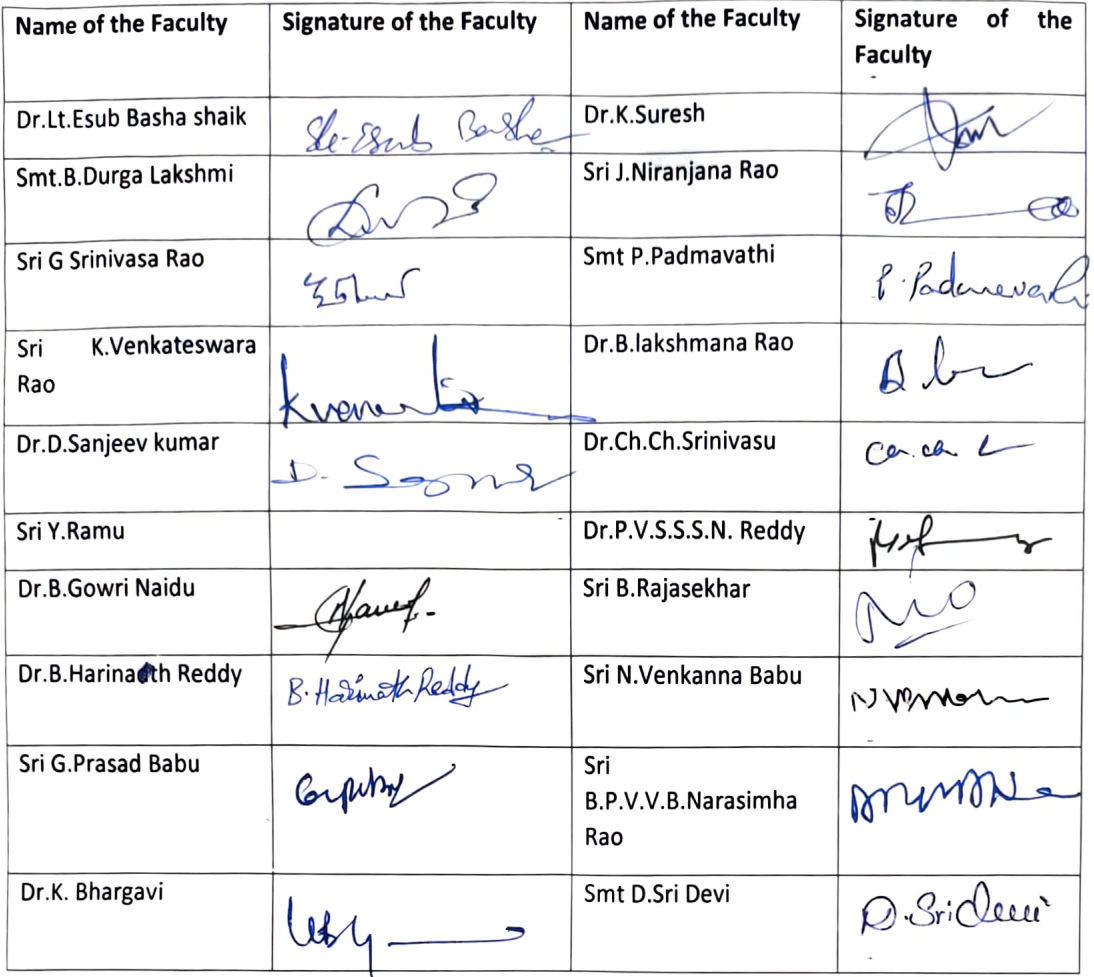 Name of the Faculty Signature of the Faculty Name of the Faculty Signature of the
Faculty
Dr.Lt.Esub Basha shaik Sk-Esub Basha Dr.K.Suresh
Smt.B.Durga Lakshmi Sri J.Niranjana Rao
Sri G Srinivasa Rao Smt P.Padmavathi P.Padmavathi
Sri K.Venkateswara Dr.B.lakshmana Rao
Rao
Dr.D.Sanjeev kumar Dr.Ch.Ch.Srinivasu
Sri Y.Ramu Dr.P.V.S.S.S.N. Reddy
Dr.B.Gowri Naidu Sri B.Rajasekhar
Dr.B.Harinaath Reddy B.Harinath Reddy Sri N.Venkanna Babu
Sri G.Prasad Babu Sri
B.P.V.V.B.Narasimha
Rao
Dr.K. Bhargavi Smt D.Sri Devi D.Sridevi